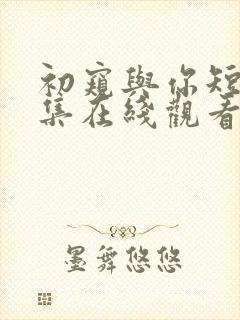 初窺與你短
集在綫觀看
墨舞悠悠